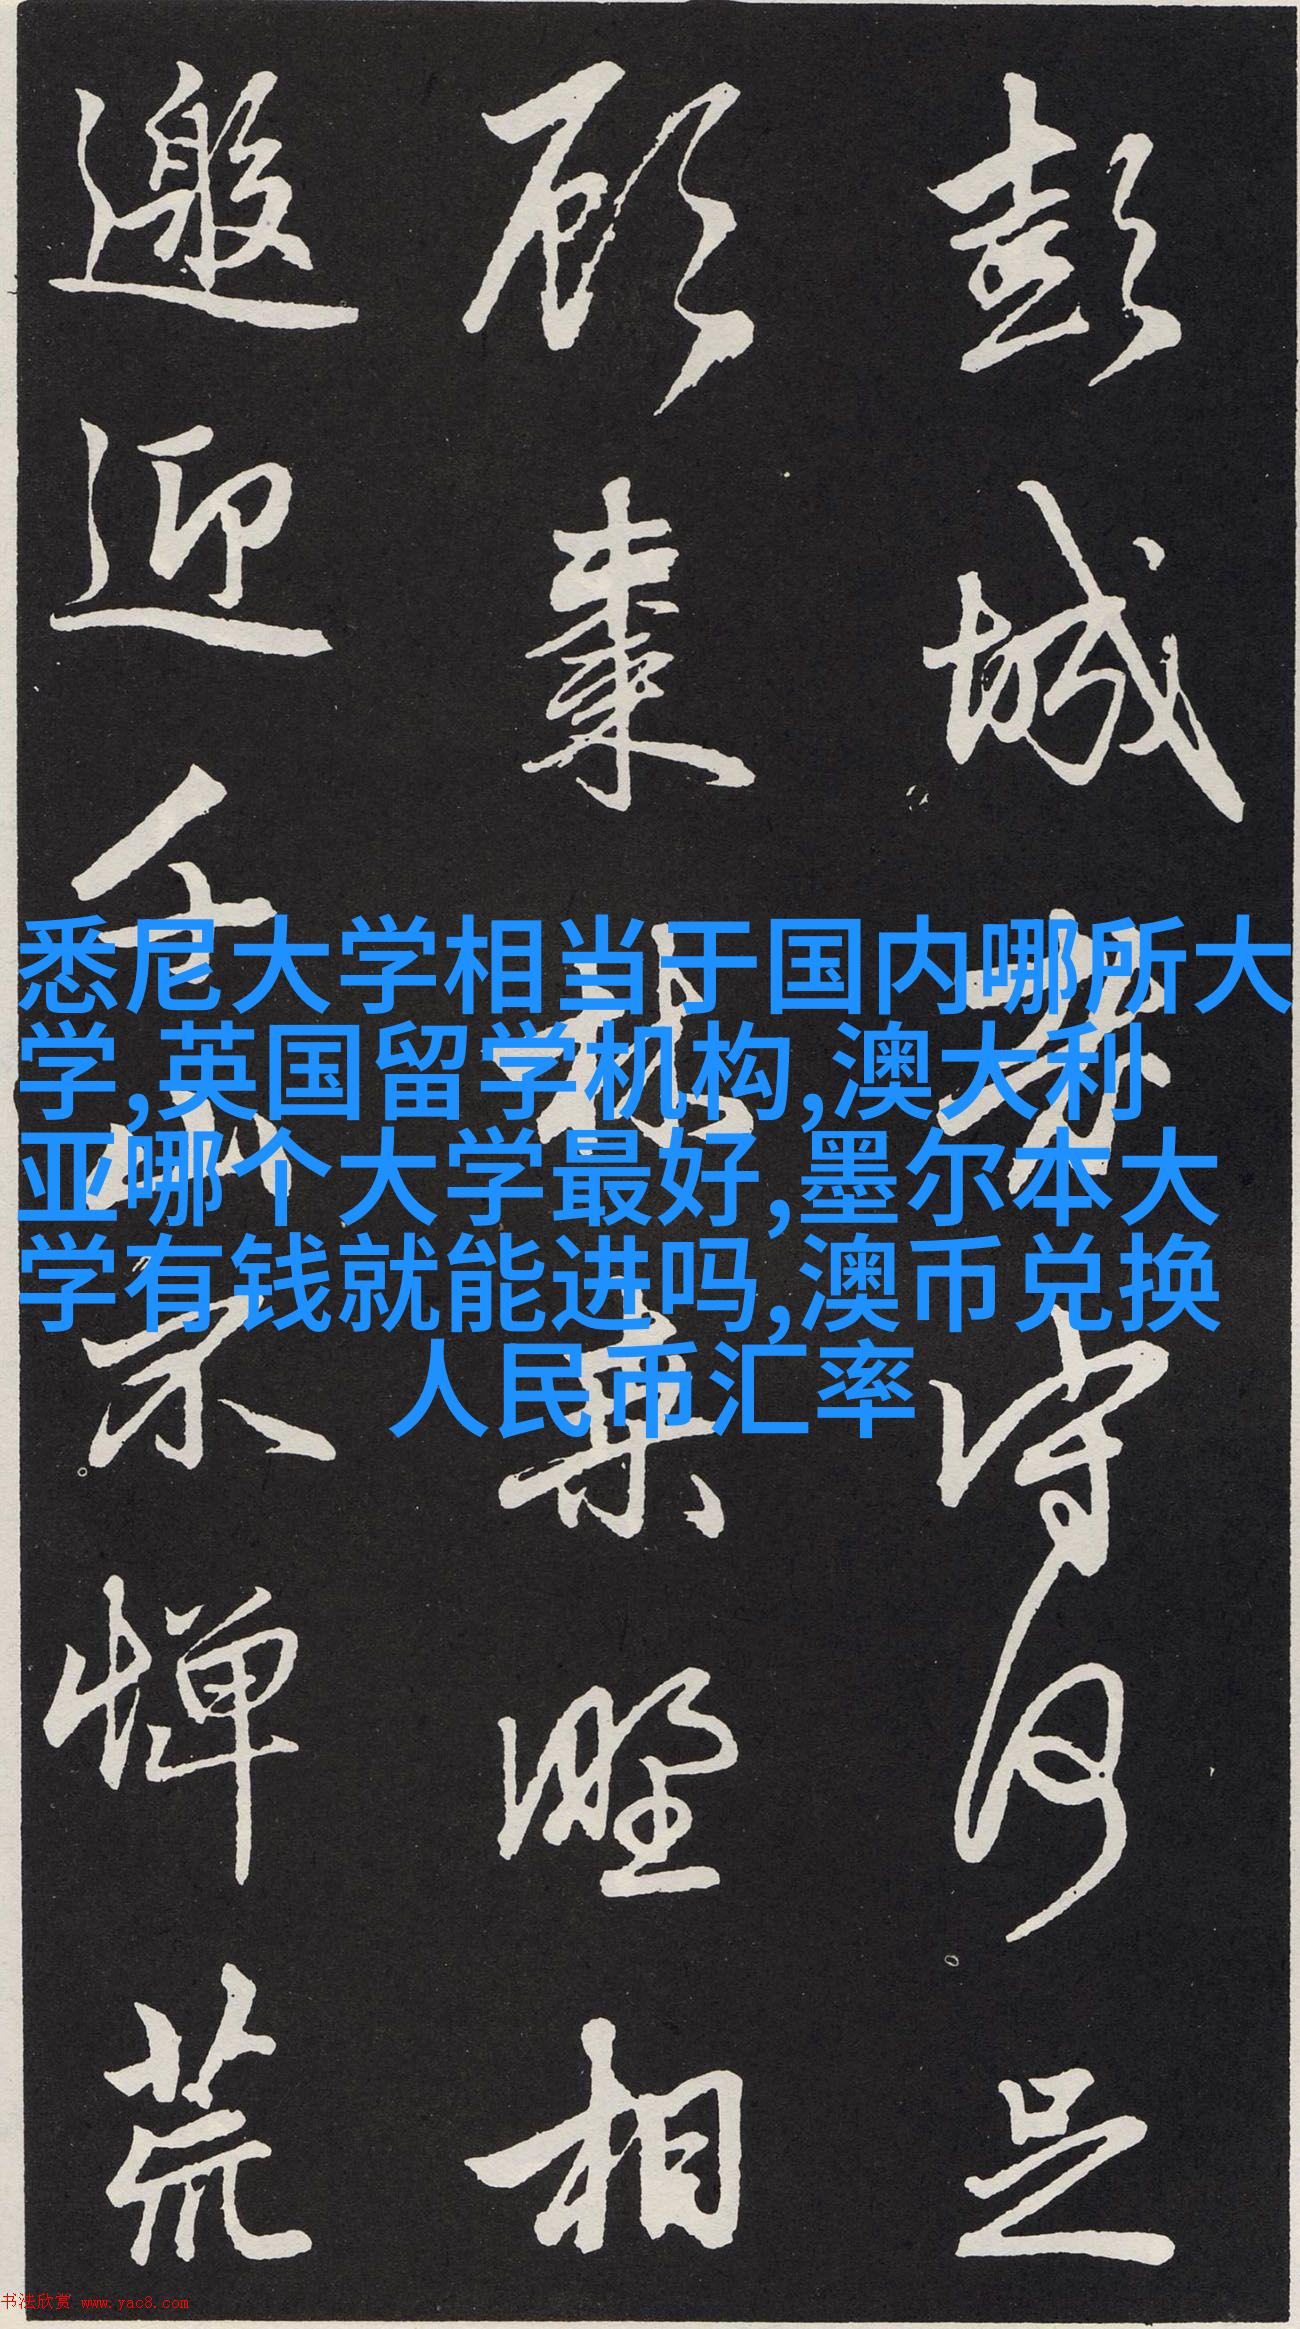 彭城老守何足
顧棗林桑野相
邀迎千山不憚荒
悉尼大学相当于国内哪所大
学,英国留学机构,澳大利
亚哪个大学最好,墨尔本大
学有钱就能进吗,澳币兑换
人民币汇率
书法欣赏 www.yac8.com